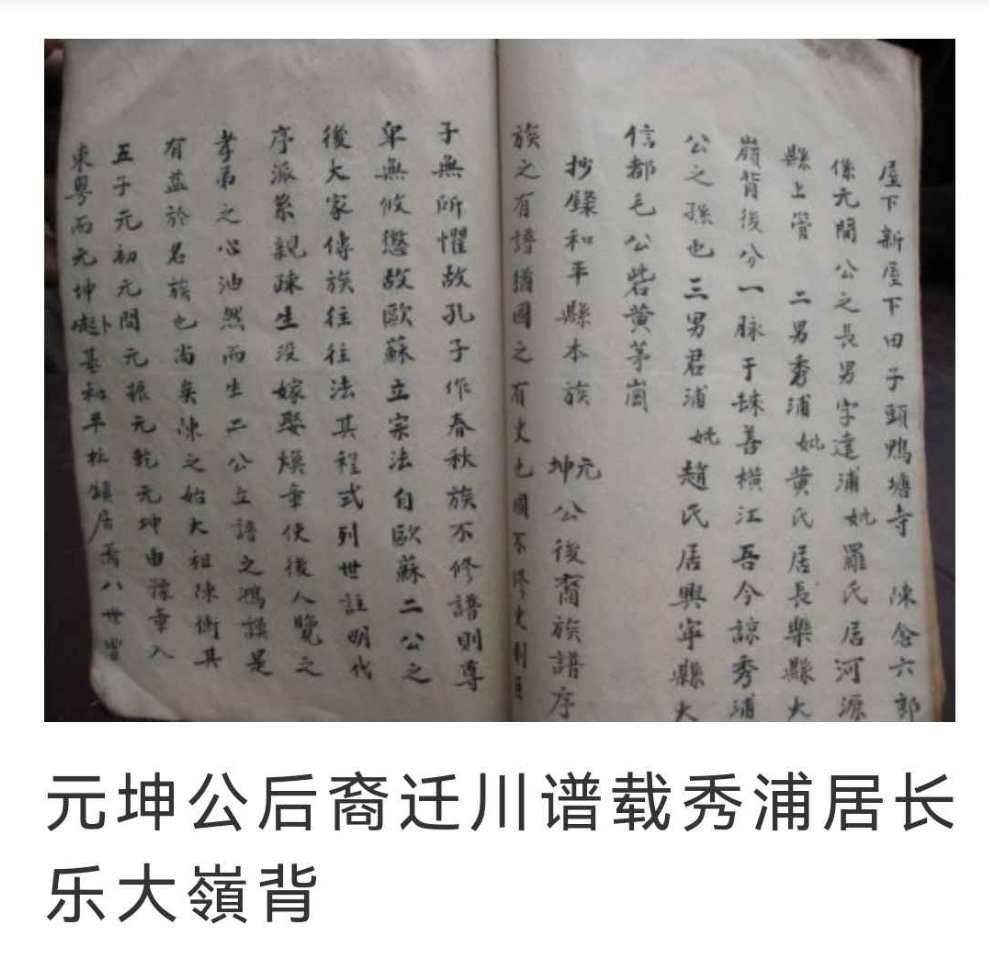 屋下新屋下田子頭鴨塘寺 陳念六郎
係元間公之長男字達浦妣羅氏居河源
縣上管 二男秀浦妣黄氏居長樂縣大
嶺背後分一脉于練善横江吾今諒秀浦
公之孫也三男君浦妣趙氏居興寧縣大
信都毛公砦黄茅崗
抄錄和平縣本族 元坤公後裔族譜序
族之有譜猶國之有史也國不修史則
子無所懼故孔子作春秋族不修譜則尊
卑無攸懲故歐蘇立宗法自歐蘇二公之
後大家傳族往往法其程式列世註明代
序派系親疎生没嫁娶煥章使後人覽之
孝弟之心油然而生二公立譜之鴻謨是
有益於名族也尚矣陳之始大祖陳衛其
五子元初元間元振元乾元坤由豫章入
東粤而元坤卜基和平林鎮居焉八世
元坤公后裔迁川谱载秀浦居长
乐大嶺背